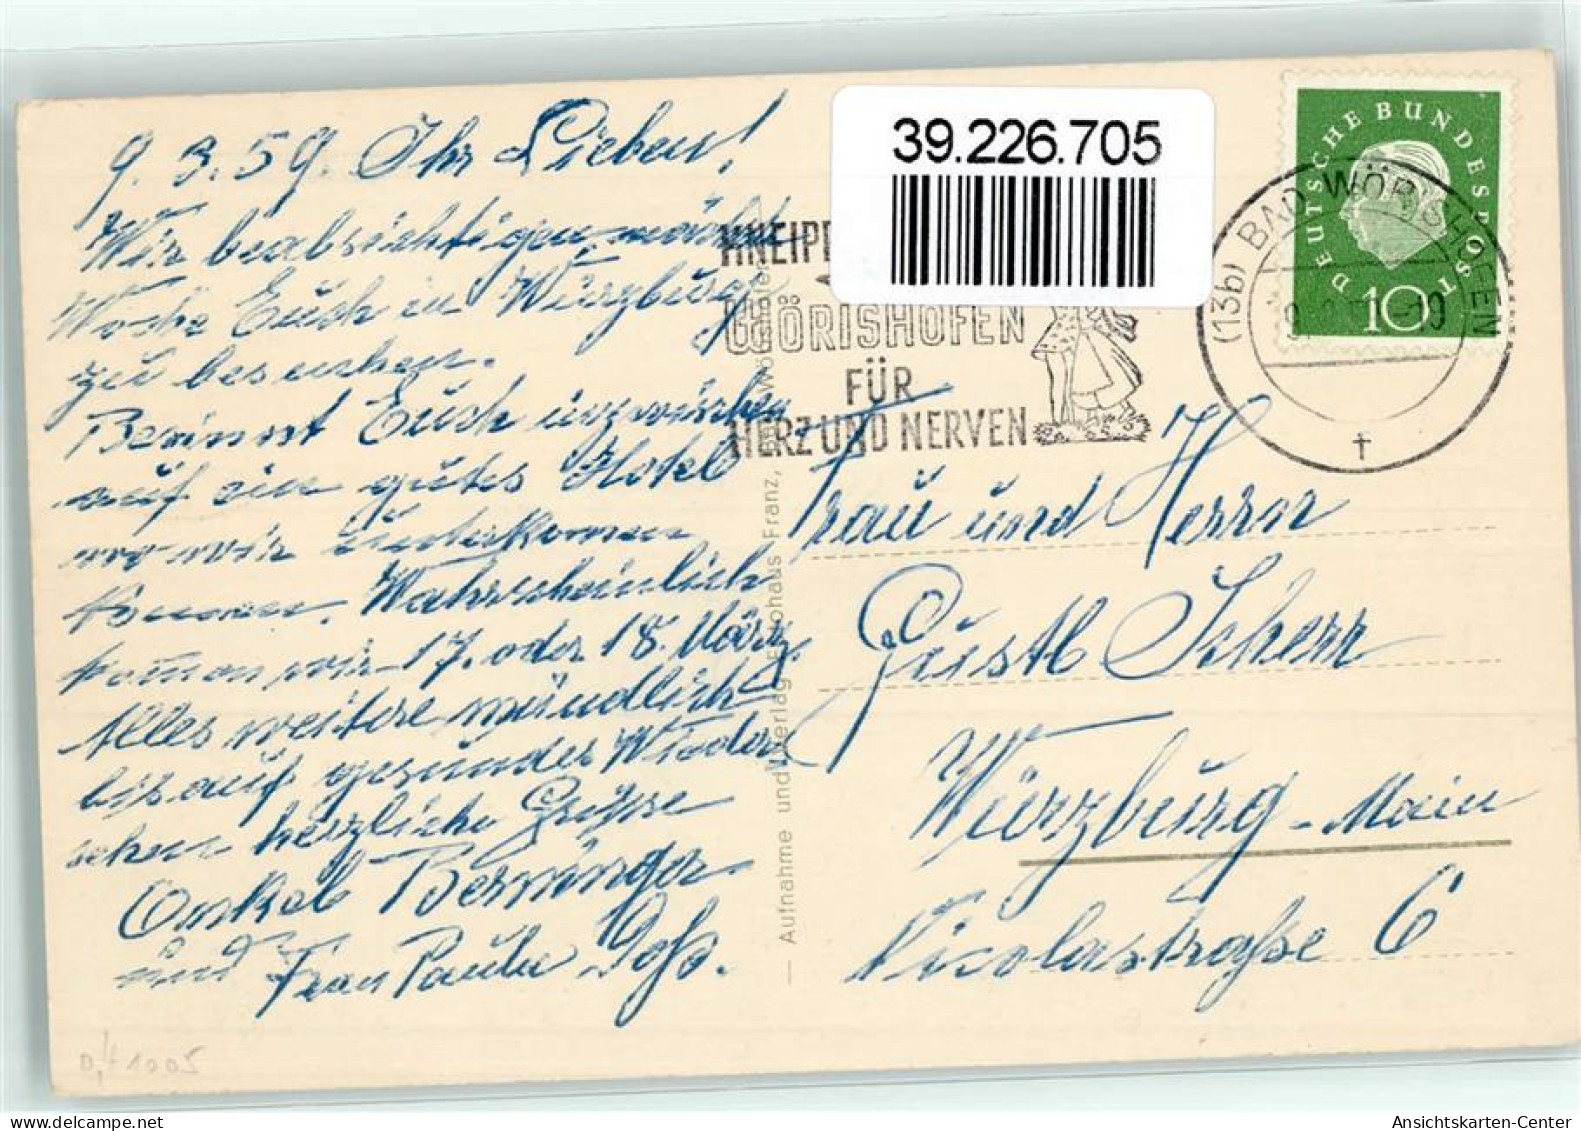 9.3.59. Ihr Lieben!
Wir beabsichtigen, nächste
Woche Euch in Würzburg
zu besuchen.
Besinnt Euch inzwischen
auf ein gutes Hotel
wo wir unterkomen
können. Wahrscheinlich
komen wir 17. oder 18. März.
Alles weitere mündlich
bis auf gesundes Wieder
sehen herzliche Grüsse
Onkel Berninger
und Frau Paula
39.226.705
KNEIPP
WÖRISHOFEN
FÜR
HERZ UND NERVEN
(13b) BAD WÖRISHOFEN
DEUTSCHE BUNDESPOST
10
Aufnahme und Verlag Fotohaus Franz,
Frau und Herrn
Gustl Scherr
Würzburg-Main
Nicolastraße 6
1005
Ansichtskarten-Center